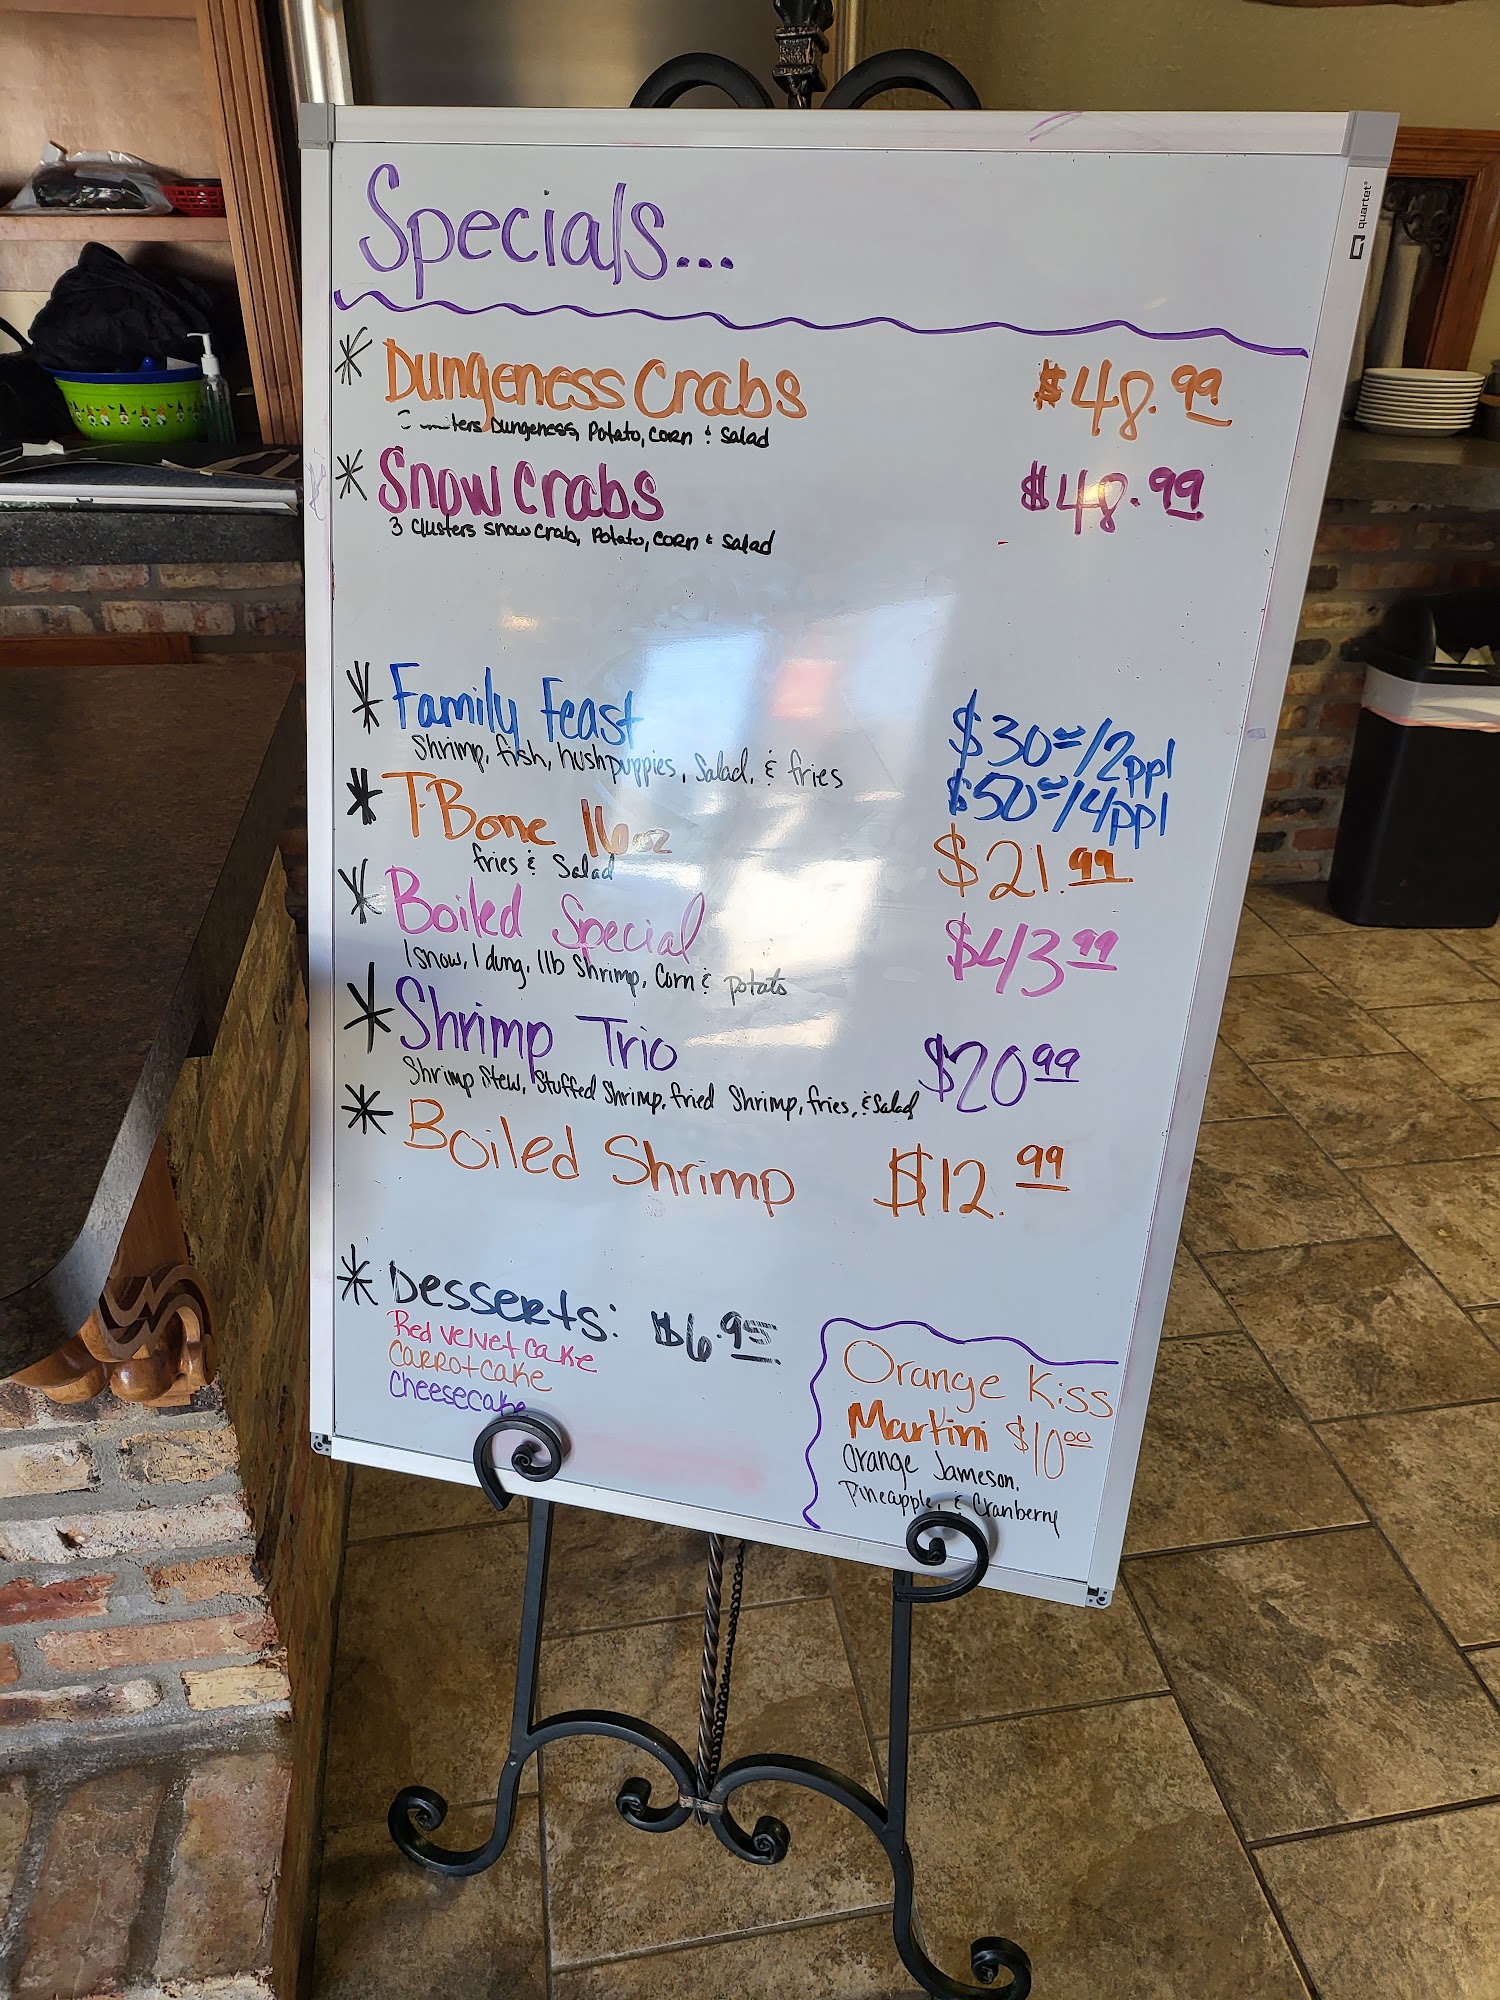 quartet
Specials...
* Dungeness Crabs $48.99
Dungeness, Potato, corn & Salad
* Snow Crabs $48.99
3 Clusters snow crab, Potato, corn & Salad
* Family Feast $30⁰⁰/2ppl
Shrimp, fish, hushpuppies, Salad, & fries $50⁰⁰/4ppl
* T-Bone 16oz $21.99
fries & Salad
* Boiled Special $43 99
1 snow, 1 dung, 1lb Shrimp, Corn & potato
* Shrimp Trio $20 99
Shrimp Stew, Stuffed Shrimp, fried Shrimp, fries, & Salad
* Boiled Shrimp $12.99
* Desserts: $6.95
Red velvet cake
Carrot cake
Cheesecake
Orange Kiss
Martini $10⁰⁰
Orange Jameson,
Pineapple, & Cranberry